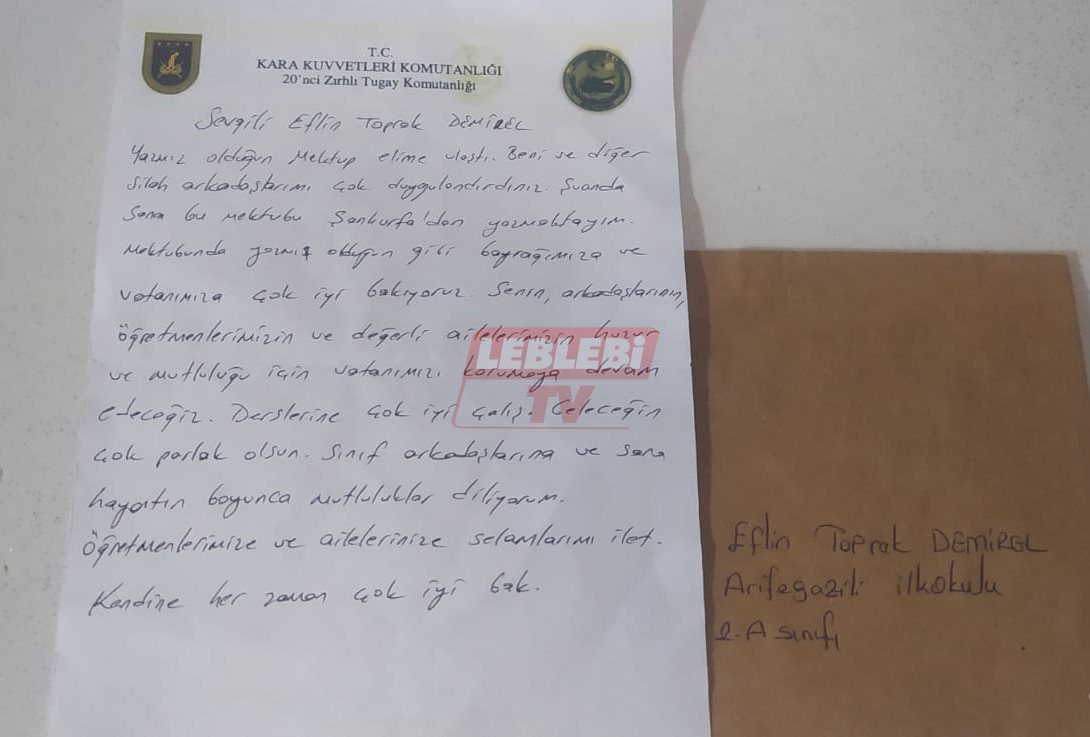 T.C.
KARA KUVVETLERİ KOMUTANLIĞI
20'nci Zırhlı Tugay Komutanlığı
Sevgili Eflin Toprak DEMİREL
Yazmız olduğun Mektup elime ulaştı. Beni ve diğer
silah arkadaşlarımı çok duygulandırdınız. Şuanda
sana bu mektubu Şanlıurfa'dan yazmaktayım.
Mektubunda yazmış olduğun gibi bayrağımıza ve
vatanımıza çok iyi bakıyoruz. Senin, arkadaşlarının,
öğretmenlerimizin ve değerli ailelerimizin huzur
ve mutluluğu için vatanımızı korumaya devam
edeceğiz. Derslerine çok iyi çalış. Geleceğin
çok parlak olsun. Sınıf arkadaşlarına ve sana
hayatın boyunca mutluluklar diliyorum.
Öğretmenlerimize ve ailelerinize selamlarımı ilet.
Kendine her zaman çok iyi bak.
LEBLEBİ
TV
Eflin Toprak DEMİREL
Arifegazili ilkokulu
2-A sınıfı